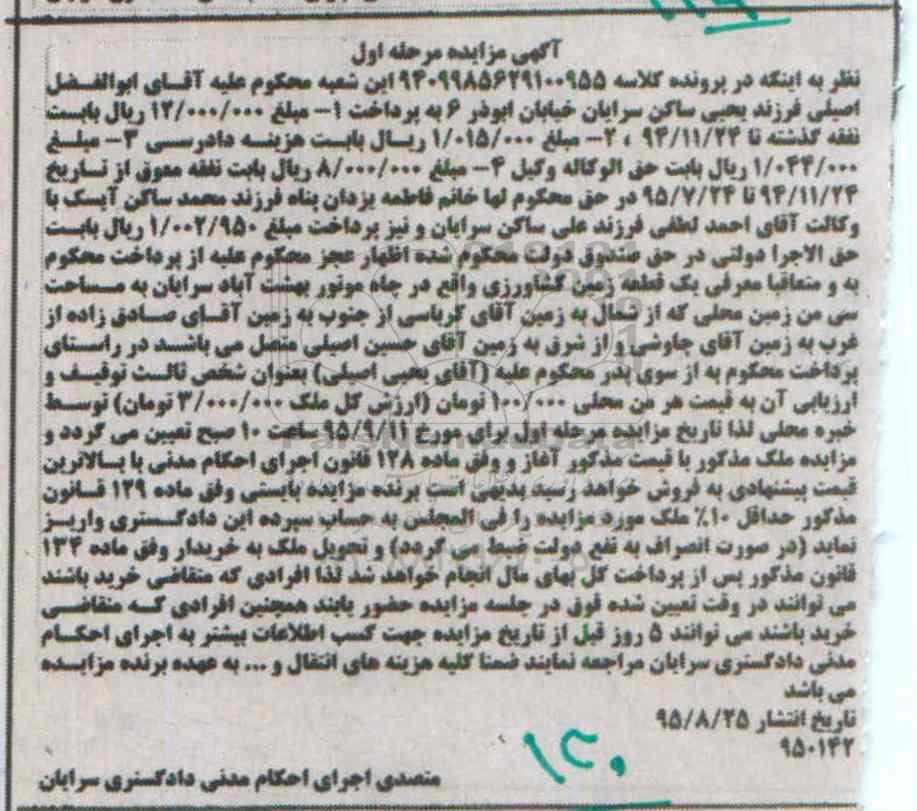 آگهی مزایده مرحله اول
نظر به اینکه در پرونده کلاسه ۹۴۰۹۹۸۵۶۲۹۱۰۰۹۵۵ این شعبه محکوم علیه آقـای ابوالفـضل
اصیلی فرزند یحیی ساکن سرایان خیابان ابوذر ۶ به پرداخت ۱- مبلغ ۱۲/۰۰۰/۰۰۰ ریال بابـت
نفقه گذشته تا ۹۴/۱۱/۲۴ ، ۲- مبلغ ۱/۰۱۵/۰۰۰ ریـال بابـت هزینـه دادرسـی ۳- مبلـغ
۱/۰۴۴/۰۰۰ ریال بابت حق الوکاله وکیل ۴- مبلغ ۸/۰۰۰/۰۰۰ ریال بابت نفقه معوق از تـاریخ
۹۴/۱۱/۲۴ تا ۹۵/۷/۲۴ در حق محکوم لها خانم فاطمه یزدان پناه فرزند محمد ساکن آیسک با
وکالت آقای احمد لطفی فرزند علی ساکن سرایان و نیز پرداخت مبلغ ۱/۰۰۲/۹۵۰ ریال بابـت
حق الاجرا دولتی در حق صندوق دولت محکوم شده اظهار عجز محکوم علیه از پرداخت محکوم
به و متعاقبا معرفی یک قطعه زمین کشاورزی واقع در چاه موتور بهشت آباد سرایان به مـساحت
سی من زمین محلی که از شمال به زمین آقای کرباسی از جنوب به زمین آقـای صـادق زاده از
غرب به زمین آقای چاوشی و از شرق به زمین آقای حسین اصیلی متصل می باشـد در راسـتای
پرداخت محکوم به از سوی پدر محکوم علیه (آقای یحیی اصیلی) بعنوان شخص ثالـث توقیـف و
ارزیابی آن به قیمت هر من محلی ۱۰۰/۰۰۰ تومان (ارزش کل ملک ۳/۰۰۰/۰۰۰ تومان) توسـط
خبره محلی لذا تاریخ مزایده مرحله اول برای مورخ ۹۵/۹/۱۱ ساعت ۱۰ صبح تعیین می گردد و
مزایده ملک مذکور با قیمت مذکور آغاز و وفق ماده ۱۲۸ قانون اجرای احکام مدنی با بـالاترین
قیمت پیشنهادی به فروش خواهد رسید بدیهی است برنده مزایده بایستی وفق ماده ۱۲۹ قـانون
مذکور حداقل ۱۰٪ ملک مورد مزایده را فی المجلس به حساب سپرده این دادگـستری واریـز
نماید (در صورت انصراف به نفع دولت ضبط می گردد) و تحویل ملک به خریدار وفق ماده ۱۳۴
قانون مذکور پس از پرداخت کل بهای مال انجام خواهد شد لذا افرادی که متقاضی خرید باشند
می توانند در وقت تعیین شده فوق در جلسه مزایده حضور یابند همچنین افرادی کـه متقاضـی
خرید باشند می توانند ۵ روز قبل از تاریخ مزایده جهت کسب اطلاعات بیشتر به اجرای احکـام
مدنی دادگستری سرایان مراجعه نمایند ضمنا کلیه هزینه های انتقال و ... به عهده برنده مزایـده
می باشد
تاریخ انتشار ۹۵/۸/۲۵
۹۵۰۱۴۲
متصدی اجرای احکام مدنی دادگستری سرایان